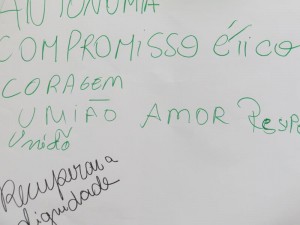 AUTONOMIA
COMPROMISSO ético
CORAGEM
UMIÃO AMOR RESPO
União
Recuperar a
dignidade